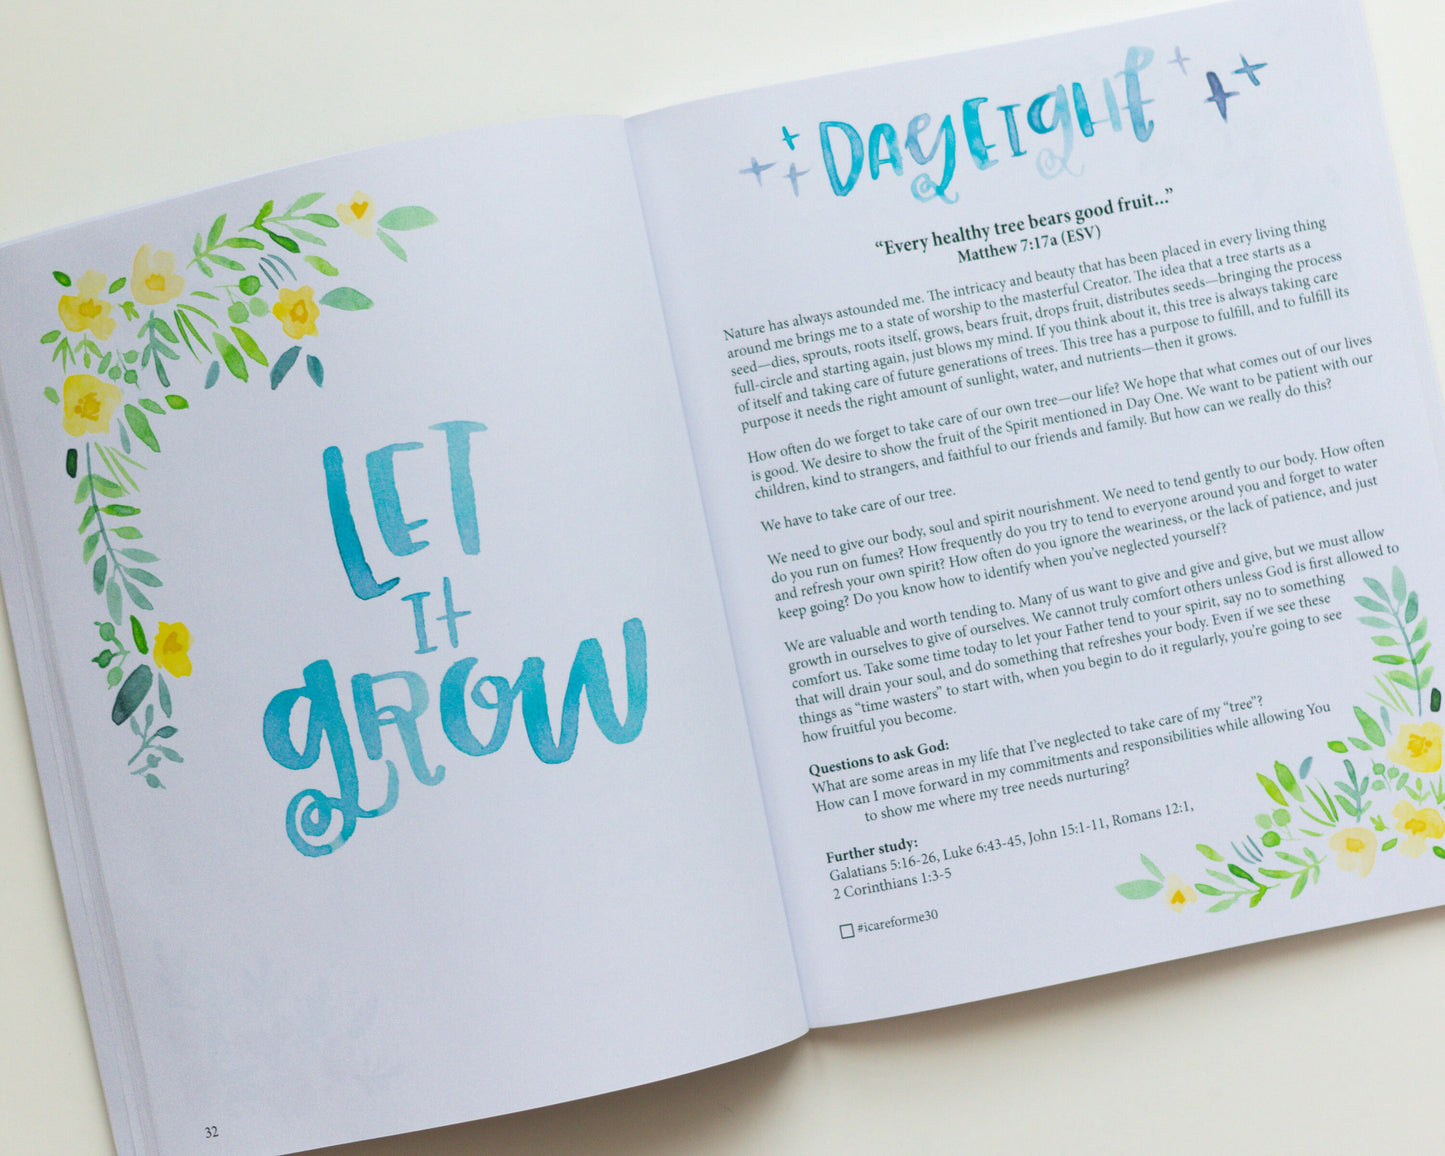 LET
It
GROW
32
DAY EIGHT
“Every healthy tree bears good fruit...”
Matthew 7:17a (ESV)
Nature has always astounded me. The intricacy and beauty that has been placed in every living thing
around me brings me to a state of worship to the masterful Creator. The idea that a tree starts as a
seed—dies, sprouts, roots itself, grows, bears fruit, drops fruit, distributes seeds—bringing the process
full-circle and starting again, just blows my mind. If you think about it, this tree is always taking care
of itself and taking care of future generations of trees. This tree has a purpose to fulfill, and to fulfill its
purpose it needs the right amount of sunlight, water, and nutrients—then it grows.
How often do we forget to take care of our own tree—our life? We hope that what comes out of our lives
is good. We desire to show the fruit of the Spirit mentioned in Day One. We want to be patient with our
children, kind to strangers, and faithful to our friends and family. But how can we really do this?
We have to take care of our tree.
We need to give our body, soul and spirit nourishment. We need to tend gently to our body. How often
do you run on fumes? How frequently do you try to tend to everyone around you and forget to water
and refresh your own spirit? How often do you ignore the weariness, or the lack of patience, and just
keep going? Do you know how to identify when you’ve neglected yourself?
We are valuable and worth tending to. Many of us want to give and give and give, but we must allow
growth in ourselves to give of ourselves. We cannot truly comfort others unless God is first allowed to
comfort us. Take some time today to let your Father tend to your spirit, say no to something
that will drain your soul, and do something that refreshes your body. Even if we see these
things as “time wasters” to start with, when you begin to do it regularly, you’re going to see
how fruitful you become.
Questions to ask God:
What are some areas in my life that I’ve neglected to take care of my “tree”?
How can I move forward in my commitments and responsibilities while allowing You
to show me where my tree needs nurturing?
Further study:
Galatians 5:16-26, Luke 6:43-45, John 15:1-11, Romans 12:1,
2 Corinthians 1:3-5
#icareforme30